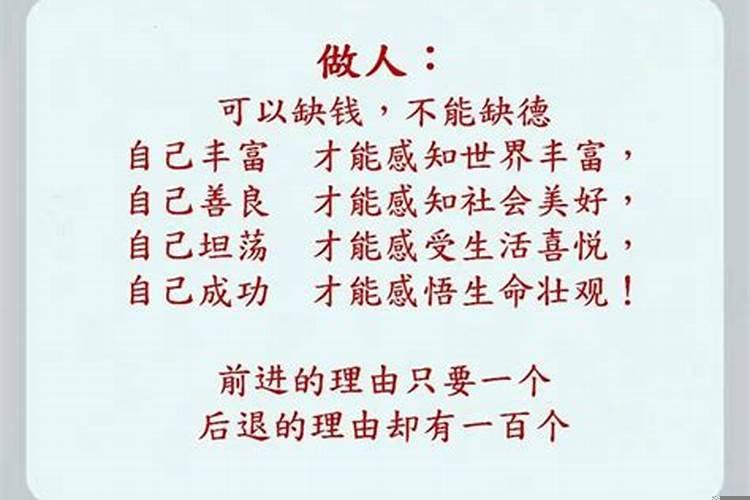 做人：
可以缺钱，不能缺德
自己丰富　才能感知世界丰富，
自己善良　才能感知社会美好，
自己坦荡　才能感受生活喜悦，
自己成功　才能感悟生命壮观！
前进的理由只要一个
后退的理由却有一百个